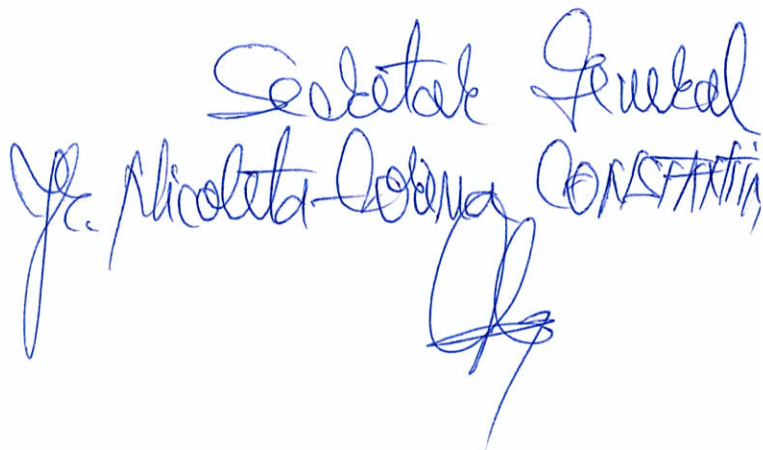 Secretar General
Jr. Nicoleta-Corina CONSTANTIN